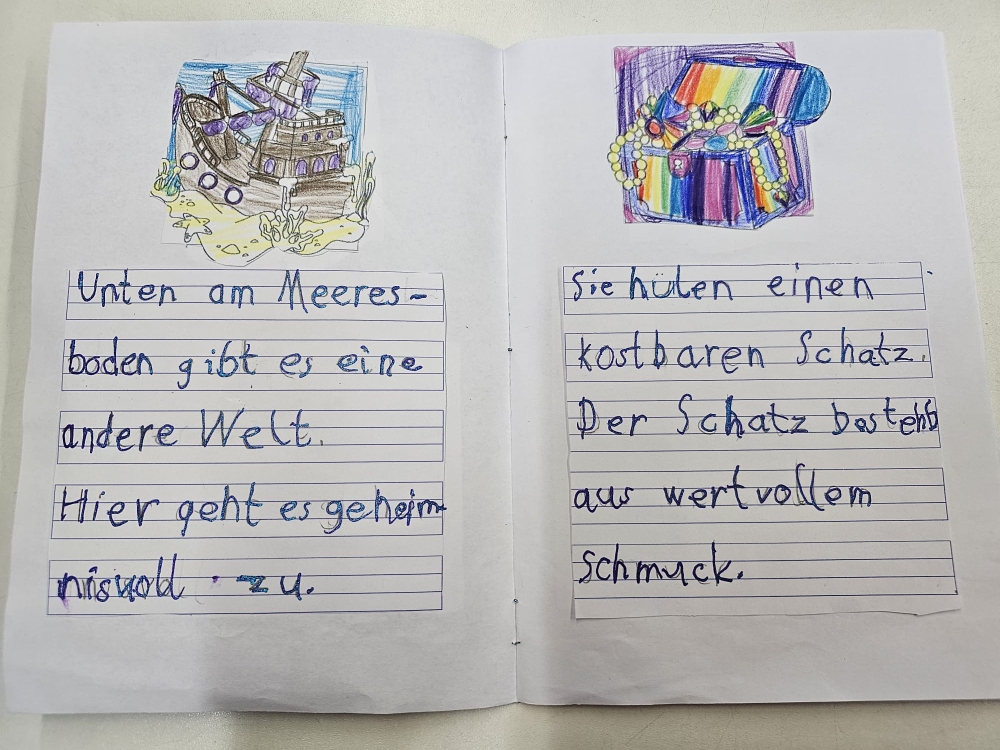 Unten am Meeres-
boden gibt es eine
andere Welt.
Hier geht es geheim-
nisvoll zu.
Sie hüten einen
kostbaren Schatz.
Der Schatz besteht
aus wertvollem
Schmuck.